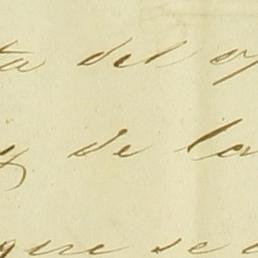 ta del
y de la
que se